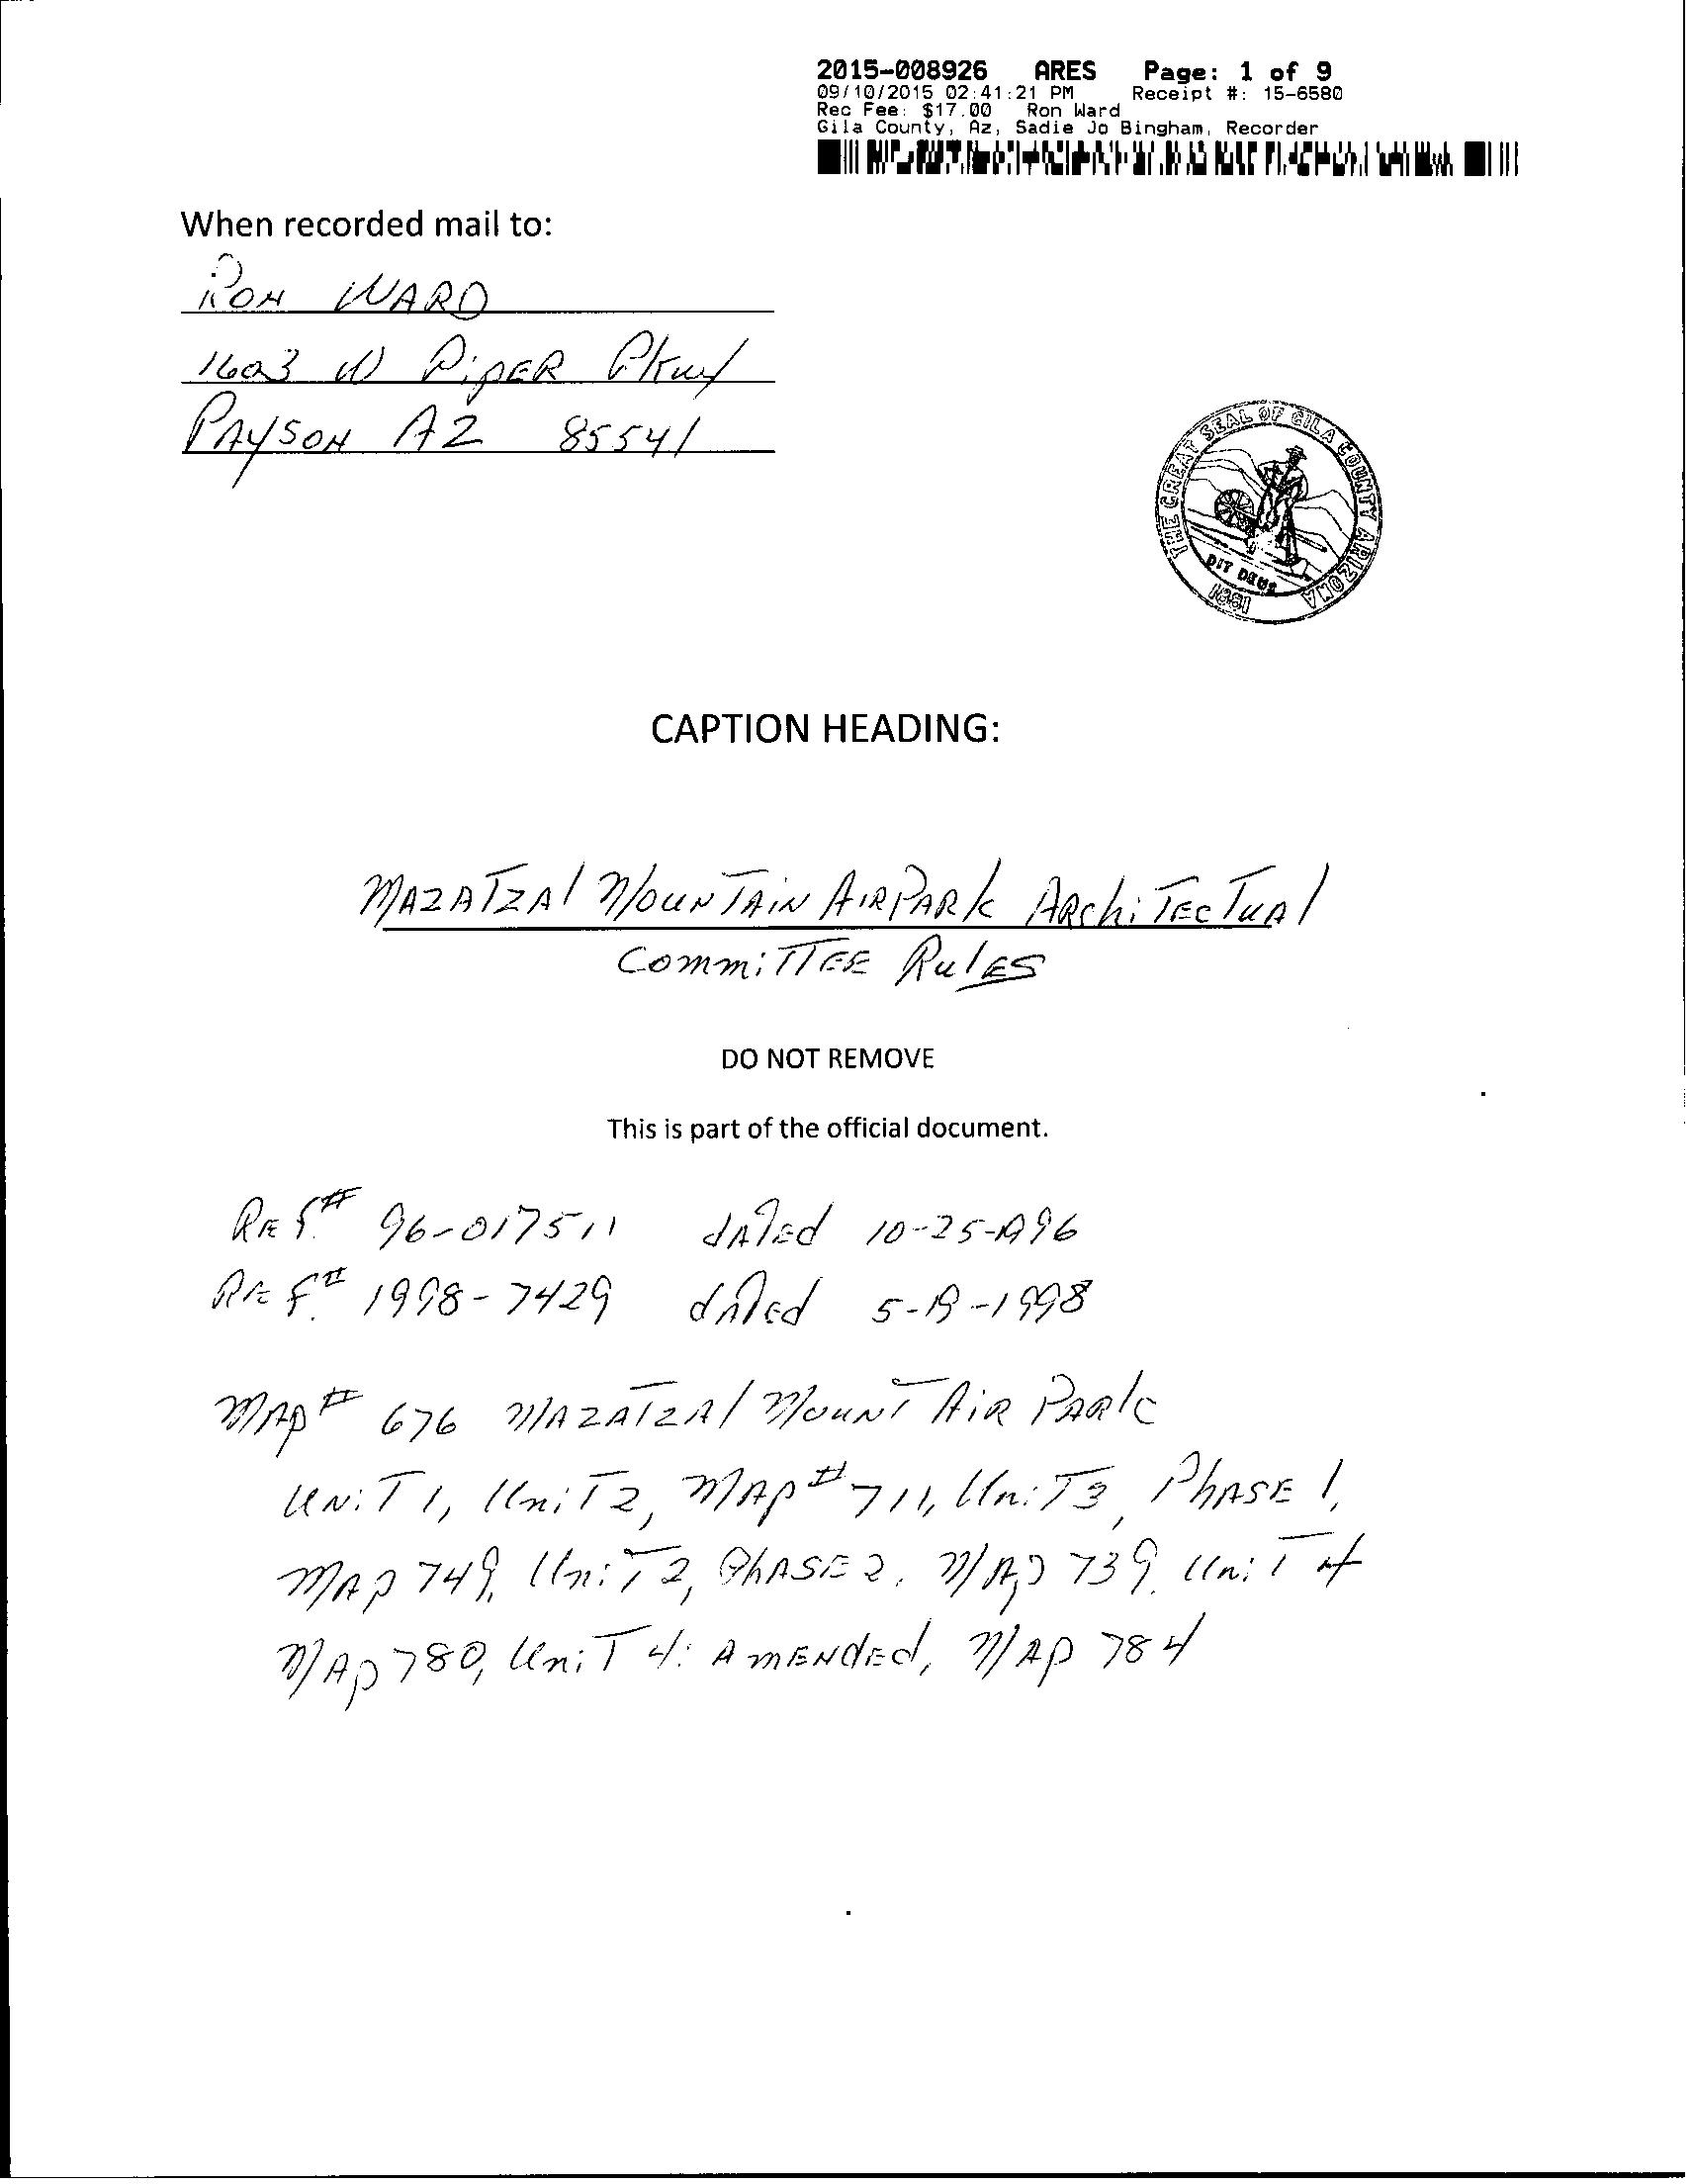 2015-008926 ARES Page: 1 of 9
09/10/2015 02:41:21 PM Receipt #: 15-6580
Rec Fee: $17.00 Ron Ward
Gila County, Az, Sadie Jo Bingham, Recorder
When recorded mail to:
RON WARD
1603 W PiPER Pkwy
PAYSON AZ 85541
THE GREAT SEAL OF GILA COUNTY ARIZONA
DIT DEUS
1881
CAPTION HEADING:
MAZATZAl MOUNTAIN AIRPARk ARchiTEcTuAl
CommiTTEE RulES
DO NOT REMOVE
This is part of the official document.
REF.# 96-017511 dATEd 10-25-1996
REF.# 1998-7429 dATEd 5-19-1998
MAP# 676 MAZATZAl MOUNT AiR PARk
UNiT 1, UniT 2, MAP# 711, UniT 3, PhASE 1,
MAP 749, UniT 2, PhASE 2, MAP 739, UniT 4
MAP 780, UniT 4: AmENdEd, MAP 784